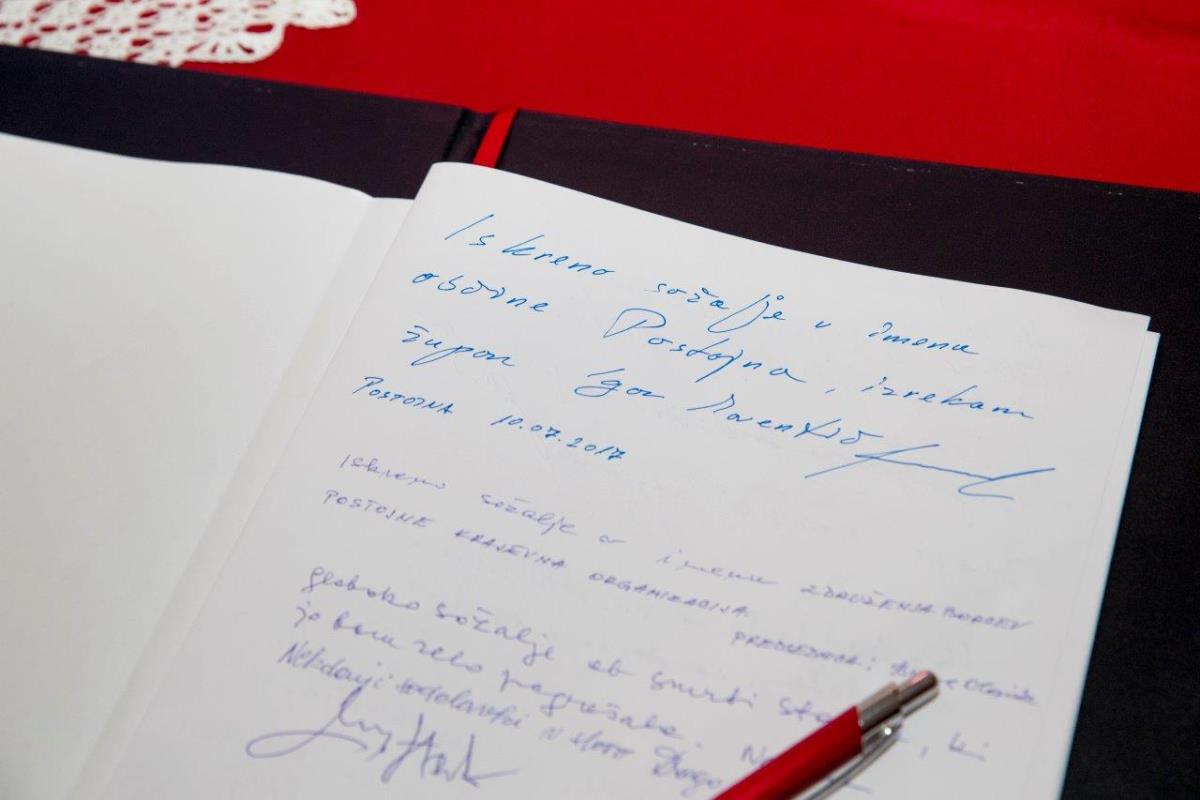 Iskreno sožalje v imenu
občine Postojna, izrekam
župan Igor Marentič
POSTOJNA 10.07.2017
Iskreno sožalje v imenu ZDRUŽENJA BORCEV
POSTOJNE KRAJEVNA ORGANIZACIJA
PREDSEDNICA:
globoko sožalje ob smrti ki
jo bom zelo pogrešala.
Nekdanji